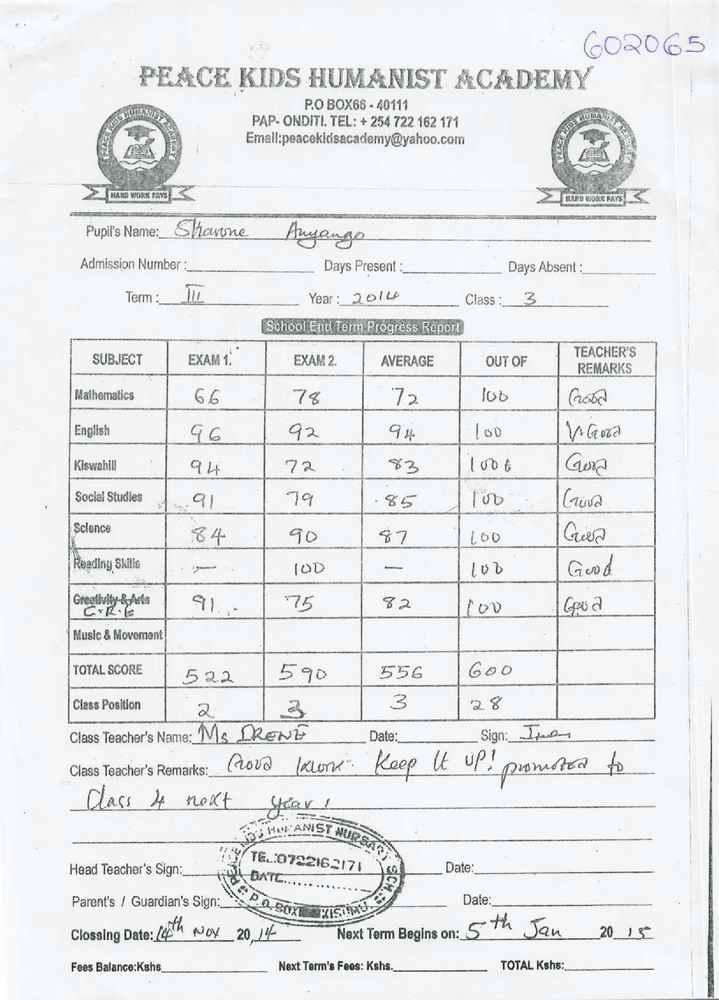 602065
PEACE KIDS HUMANIST ACADEMY
P.O BOX66 - 40111
PAP- ONDITI. TEL: + 254 722 162 171
Email:peacekidsacademy@yahoo.com
PEACE KIDS HUMANIST ACADEMY
HARD WORK PAYS
PEACE KIDS HUMANIST ACADEMY
HARD WORK PAYS
Pupil's Name: Sharone Anyango
Admission Number : Days Present : Days Absent :
Term : III Year : 2014 Class : 3
School End Term Progress Report
SUBJECT EXAM 1. EXAM 2. AVERAGE OUT OF TEACHER'S REMARKS
Mathematics 66 78 72 100 Good
English 96 92 94 100 V. Good
Kiswahili 94 72 83 100 Good
Social Studies 91 79 85 100 Good
Science 84 90 87 100 Good
Reading Skills — 100 — 100 Good
Creativity & Arts C.R.E 91 75 82 100 Good
Music & Movement
TOTAL SCORE 522 590 556 600
Class Position 2 3 3 28
Class Teacher's Name: Ms IRENE Date: Sign:
Class Teacher's Remarks: Good work. Keep it up! promoted to
Class 4 next year!
HUMANIST NURSARY SCH
TEL:0722162171
DATE..............
P.O. BOX KISUMU
Head Teacher's Sign: Date:
Parent's / Guardian's Sign: Date:
Clossing Date: 14th Nov 2014 Next Term Begins on: 5th Jan 2015
Fees Balance:Kshs Next Term's Fees: Kshs. TOTAL Kshs: